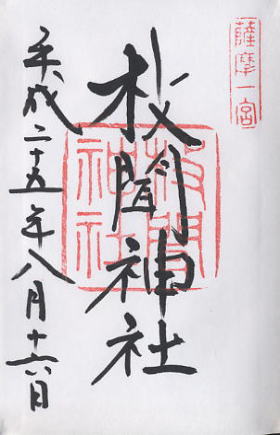 薩摩一宮
枚聞神社
枚聞神社
平成二十五年八月十六日